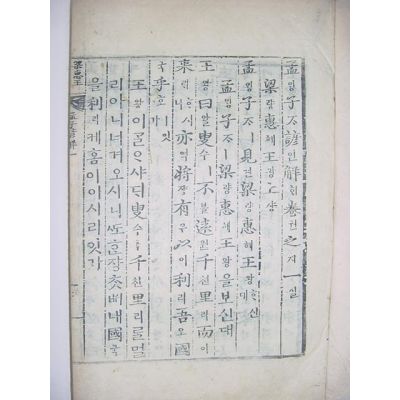 孟ᄆᆡᆼ子ᄌᆞ諺언解ᄒᆡ卷권之지一일
梁량惠혜王왕上샹
孟ᄆᆡᆼ子ᄌᆞㅣ見견梁량惠혜王왕ᄒᆞ신대
孟ᄆᆡᆼ子ᄌᆞㅣ梁량惠혜王왕을보신대
王왕曰왈叟수ㅣ不블遠원千쳔里리而이
來ᄅᆡᄒᆞ시니亦역將쟝有유以이利리吾오國
국乎호ㅣ잇가
王왕이ᄀᆞᆯᄋᆞ샤ᄃᆡ叟수ㅣ千쳔里리ᄅᆞᆯ멀
리아니너겨오시니ᄯᅩᄒᆞᆫ쟝ᄎᆞᆺᄡᅥ내國국
을利리케홈이이시리잇가
梁惠王